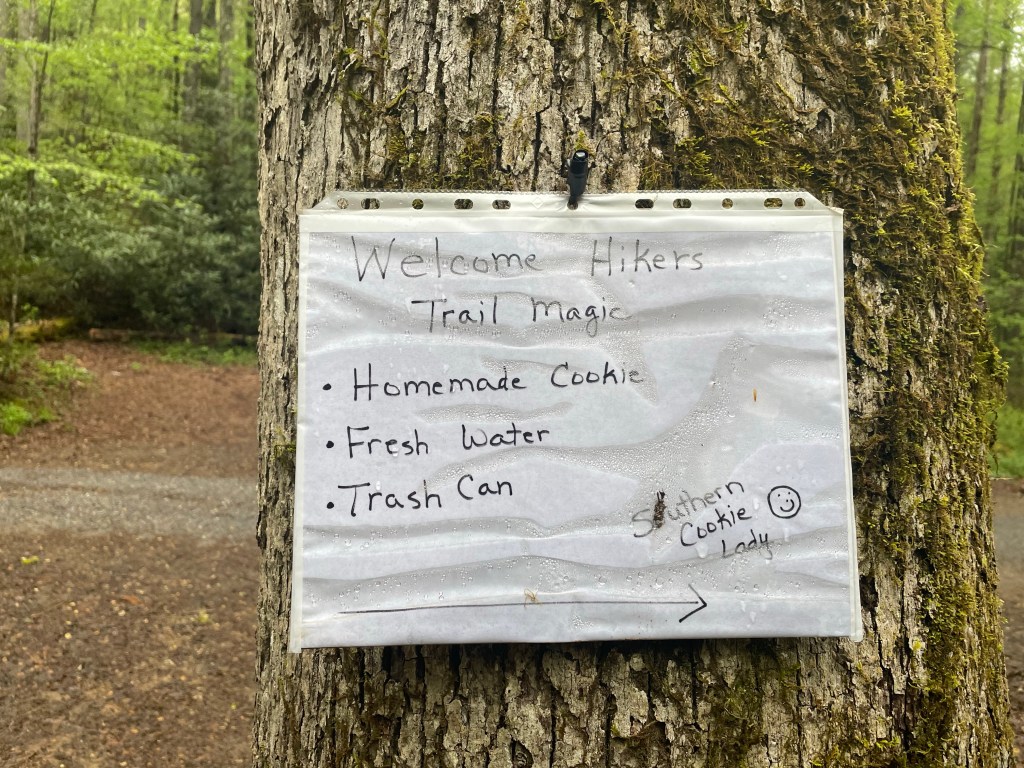 Welcome Hikers
Trail Magic
• Homemade Cookie
• Fresh Water
• Trash Can
Southern
Cookie
Lady